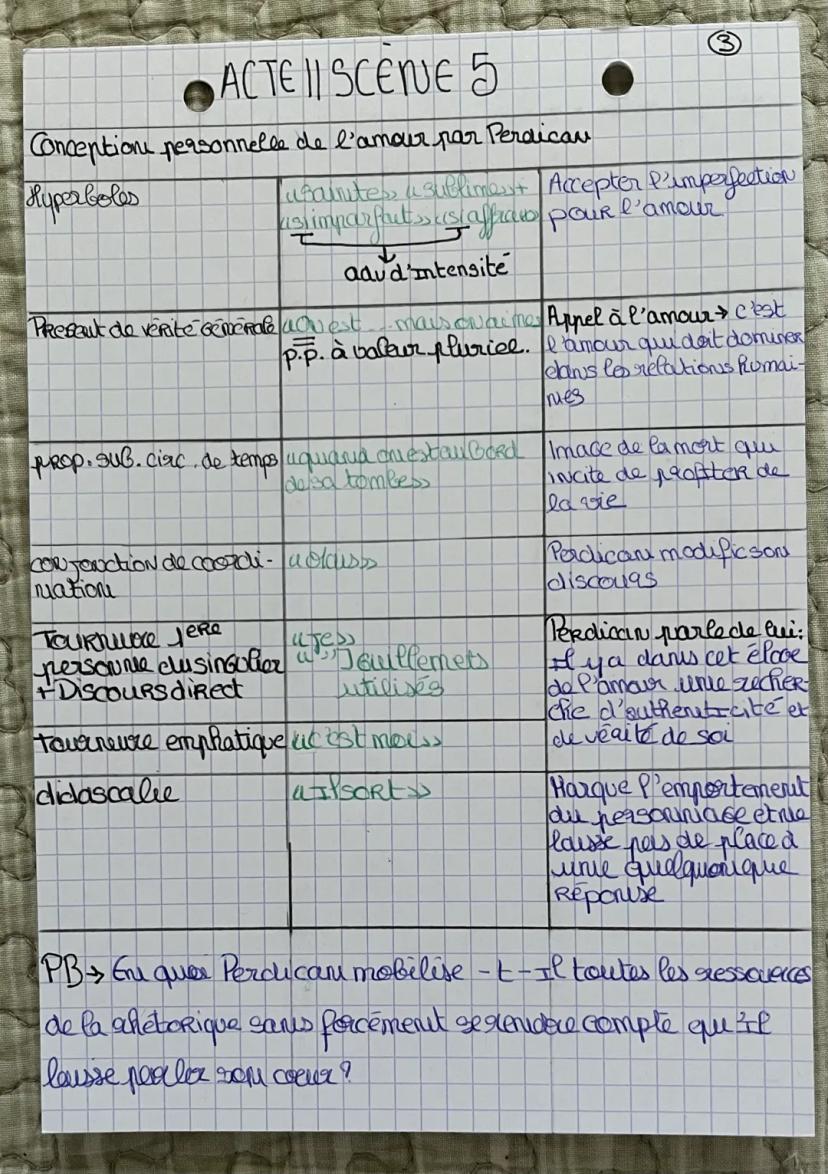 ③
ACTE II SCÈNE 5
Conception personnelle de l'amour par Perdican
Hyperboles
« sainte » « sublime » +
« si imparfaits » « si affreux »
adv d'intensité
Accepter l'imperfection
pour l'amour
Présent de vérité générale
« on est ... mais on aime »
p.p. à valeur pluriel.
Appel à l'amour → c'est
l'amour qui doit dominer
dans les relations humai-
nes
prop. sub. circ. de temps
« quand on est au bord
de sa tombe »
Image de la mort qui
incite de profiter de
la vie
conjonction de coordi-
nation
Perdican modifie son
discours
Tournure 1ère
personne du singulier
+ Discours direct
« Je »
« » ] Guillemets
utilisés
Perdican parle de lui :
Il y a dans cet éloge
de l'amour une recher-
che d'authenticité et
de vérité de soi
tournure emphatique
« c'est moi »
didascalie
« Il sort »
Marque l'emportement
du personnage et ne
laisse pas de place à
une quelquonque
Réponse
PB → En quoi Perdican mobilise -t-Il toutes les ressources
de la rhétorique sans forcément se rendre compte qu'Il
laisse parler son coeur ?